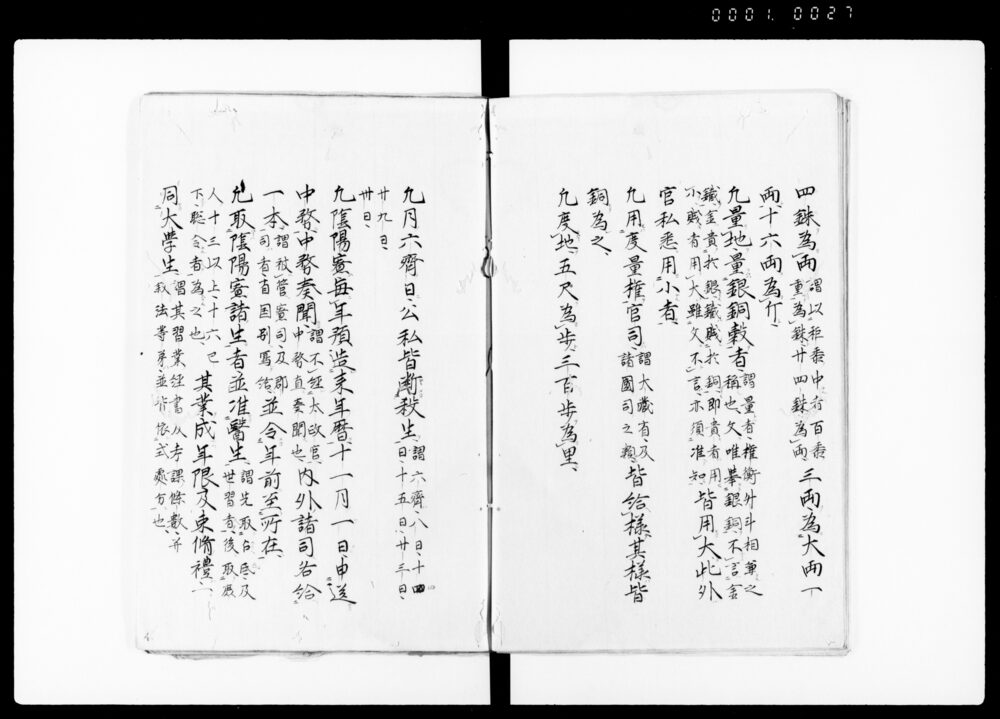 0001 0027
四銖為両謂以秬黍中者百黍
重為銖廿四銖為両三両為大両一
両十六両為斤
凢量地量銀銅穀者謂量者権衡外斗相兼之
稱也文唯擧銀銅不言金
鐵金貴於銀鐵賎於銅即貴者用
小賎者用大雖文不言亦須准知皆用大此外
官私悉用小者
凢用度量権官司謂大蔵省及
諸國司之類皆給樣其樣皆
銅為之
凢度地五尺為歩三百歩為里
凢月六齊日公私皆断殺生謂六齊八日十四
日十五日廿三日
廿九日
卅日
凢陰陽寮毎年預造来年暦十一月一日申送
中務中務奏聞謂不経太政官
中務直奏聞也内外諸司各給
一本謂被管寮司及郡
司者省国別寫給並令年前至所在
凢取陰陽寮諸生者並准醫生謂先取占氏及
世習者後取庶
人十三以上十六已
下聡令者為之也其業成年限及束脩禮一
同大学生謂其習業経書从考課條數并
叙法等第並皆依式處分也